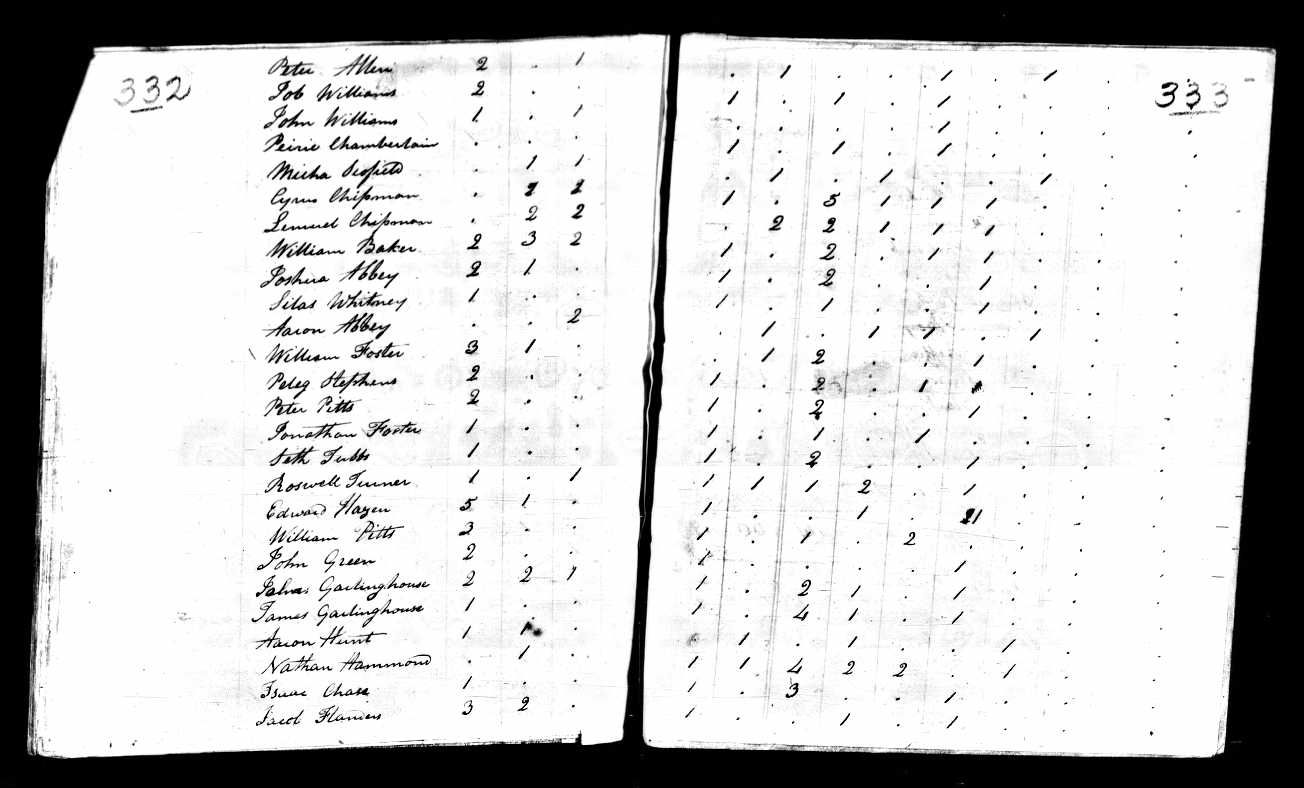 332
Peter Allen 2 . 1
Job Williams 2 . .
John Williams 1 . 1
Peirie Chamberlain . . .
Micha Scofield . 1 1
Cyrus Chipman . 2 2
Lemuel Chipman . 2 2
William Baker 2 3 2
Joshua Abbey 2 1 .
Silas Whitney 1 . .
Aaron Abbey . . 2
William Foster 3 1 .
Peleg Stephens 2 . .
Peter Pitts 2 . .
Jonathan Foster 1 . .
Seth Tubbs 1 . .
Roswell Turner 1 . 1
Edward Hazen 5 1 .
William Pitts 3 . .
John Green 2 . .
Garlinghouse 2 2 1
James Garlinghouse 1 . .
Aaron Hunt 1 1 .
Nathan Hammond . 1 .
Isaac Chase 1 . .
Jacob Flanders 3 2 .
333
. 1 . . 1 . 1 . .
1 . 1 . 1 . . . .
. . . . 1 . . . .
1 . 1 . 1 . . . .
. 1 . 1 . . 1 . .
1 . 5 1 1 1 . . .
. 2 2 1 1 1 . . .
1 . 2 . 1 1 . . .
1 . 2 . . 1 . . .
1 . 1 . . 1 . . .
. 1 . 1 1 . 1 . .
. 1 2 . . 1 . . .
1 . 2 . 1 1 . . .
1 . 2 . . 1 . . .
1 . 1 . 1 . . . .
1 . 2 . . 1 . . .
1 1 1 2 . 1 . . .
1 . . 1 . 1 . . .
1 . 1 . 2 . . . .
1 . . . . 1 . . .
1 . 2 1 . 1 . . .
1 . 4 1 . 1 . . .
. 1 . 1 . . 1 . .
1 1 4 2 2 . 1 . .
1 . 3 . . 1 . . .
1 . . 1 . 1 . . .